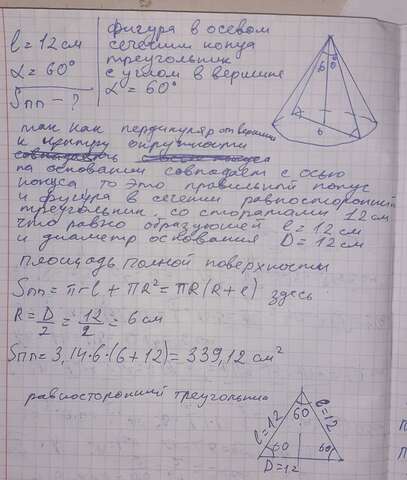 l = 12 см
α = 60°
Sпп - ?
фигура в осевом
сечении конуса
треугольник
с углом в вершине
α = 60°
60°
6
так как пердикуляр от вершины
к центру окружности
на основании совпадает с осью
конуса то это правильной конус
и фигура в сечении равносторонний
треугольник со сторонами 12 см
что равно образующей l = 12 см
и диаметр основания D = 12 см
площадь полной поверхности
Sпп = πrl + πR² = πR(R+l) здесь
R = D/2 = 12/2 = 6 см
Sпп = 3,14·6·(6+12) = 339,12 см²
равносторонний треугольник
60
l=12
l=12
60
60
D=12